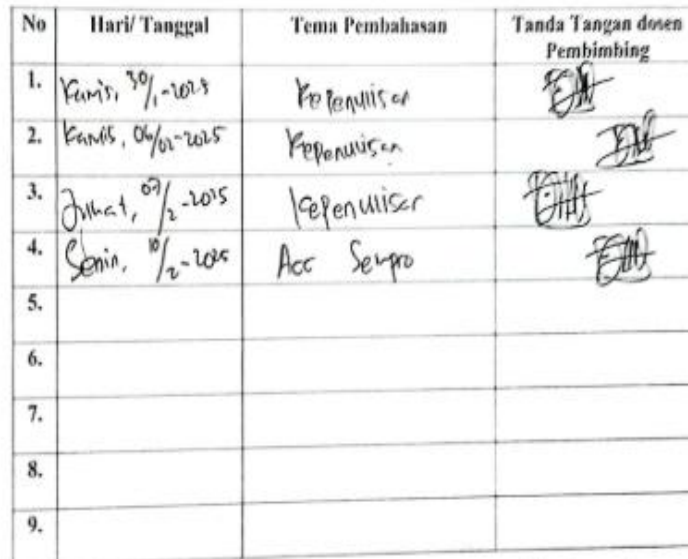 No Hari/ Tanggal Tema Pembahasan Tanda Tangan dosen
Pembimbing
1. Kamis, 30/1-2025 Kepenulisan
2. Kamis, 06/02-2025 Kepenulisan
3. Jumat, 07/2-2025 Kepenulisan
4. Senin, 10/2-2025 Acc Sempro
5.
6.
7.
8.
9.